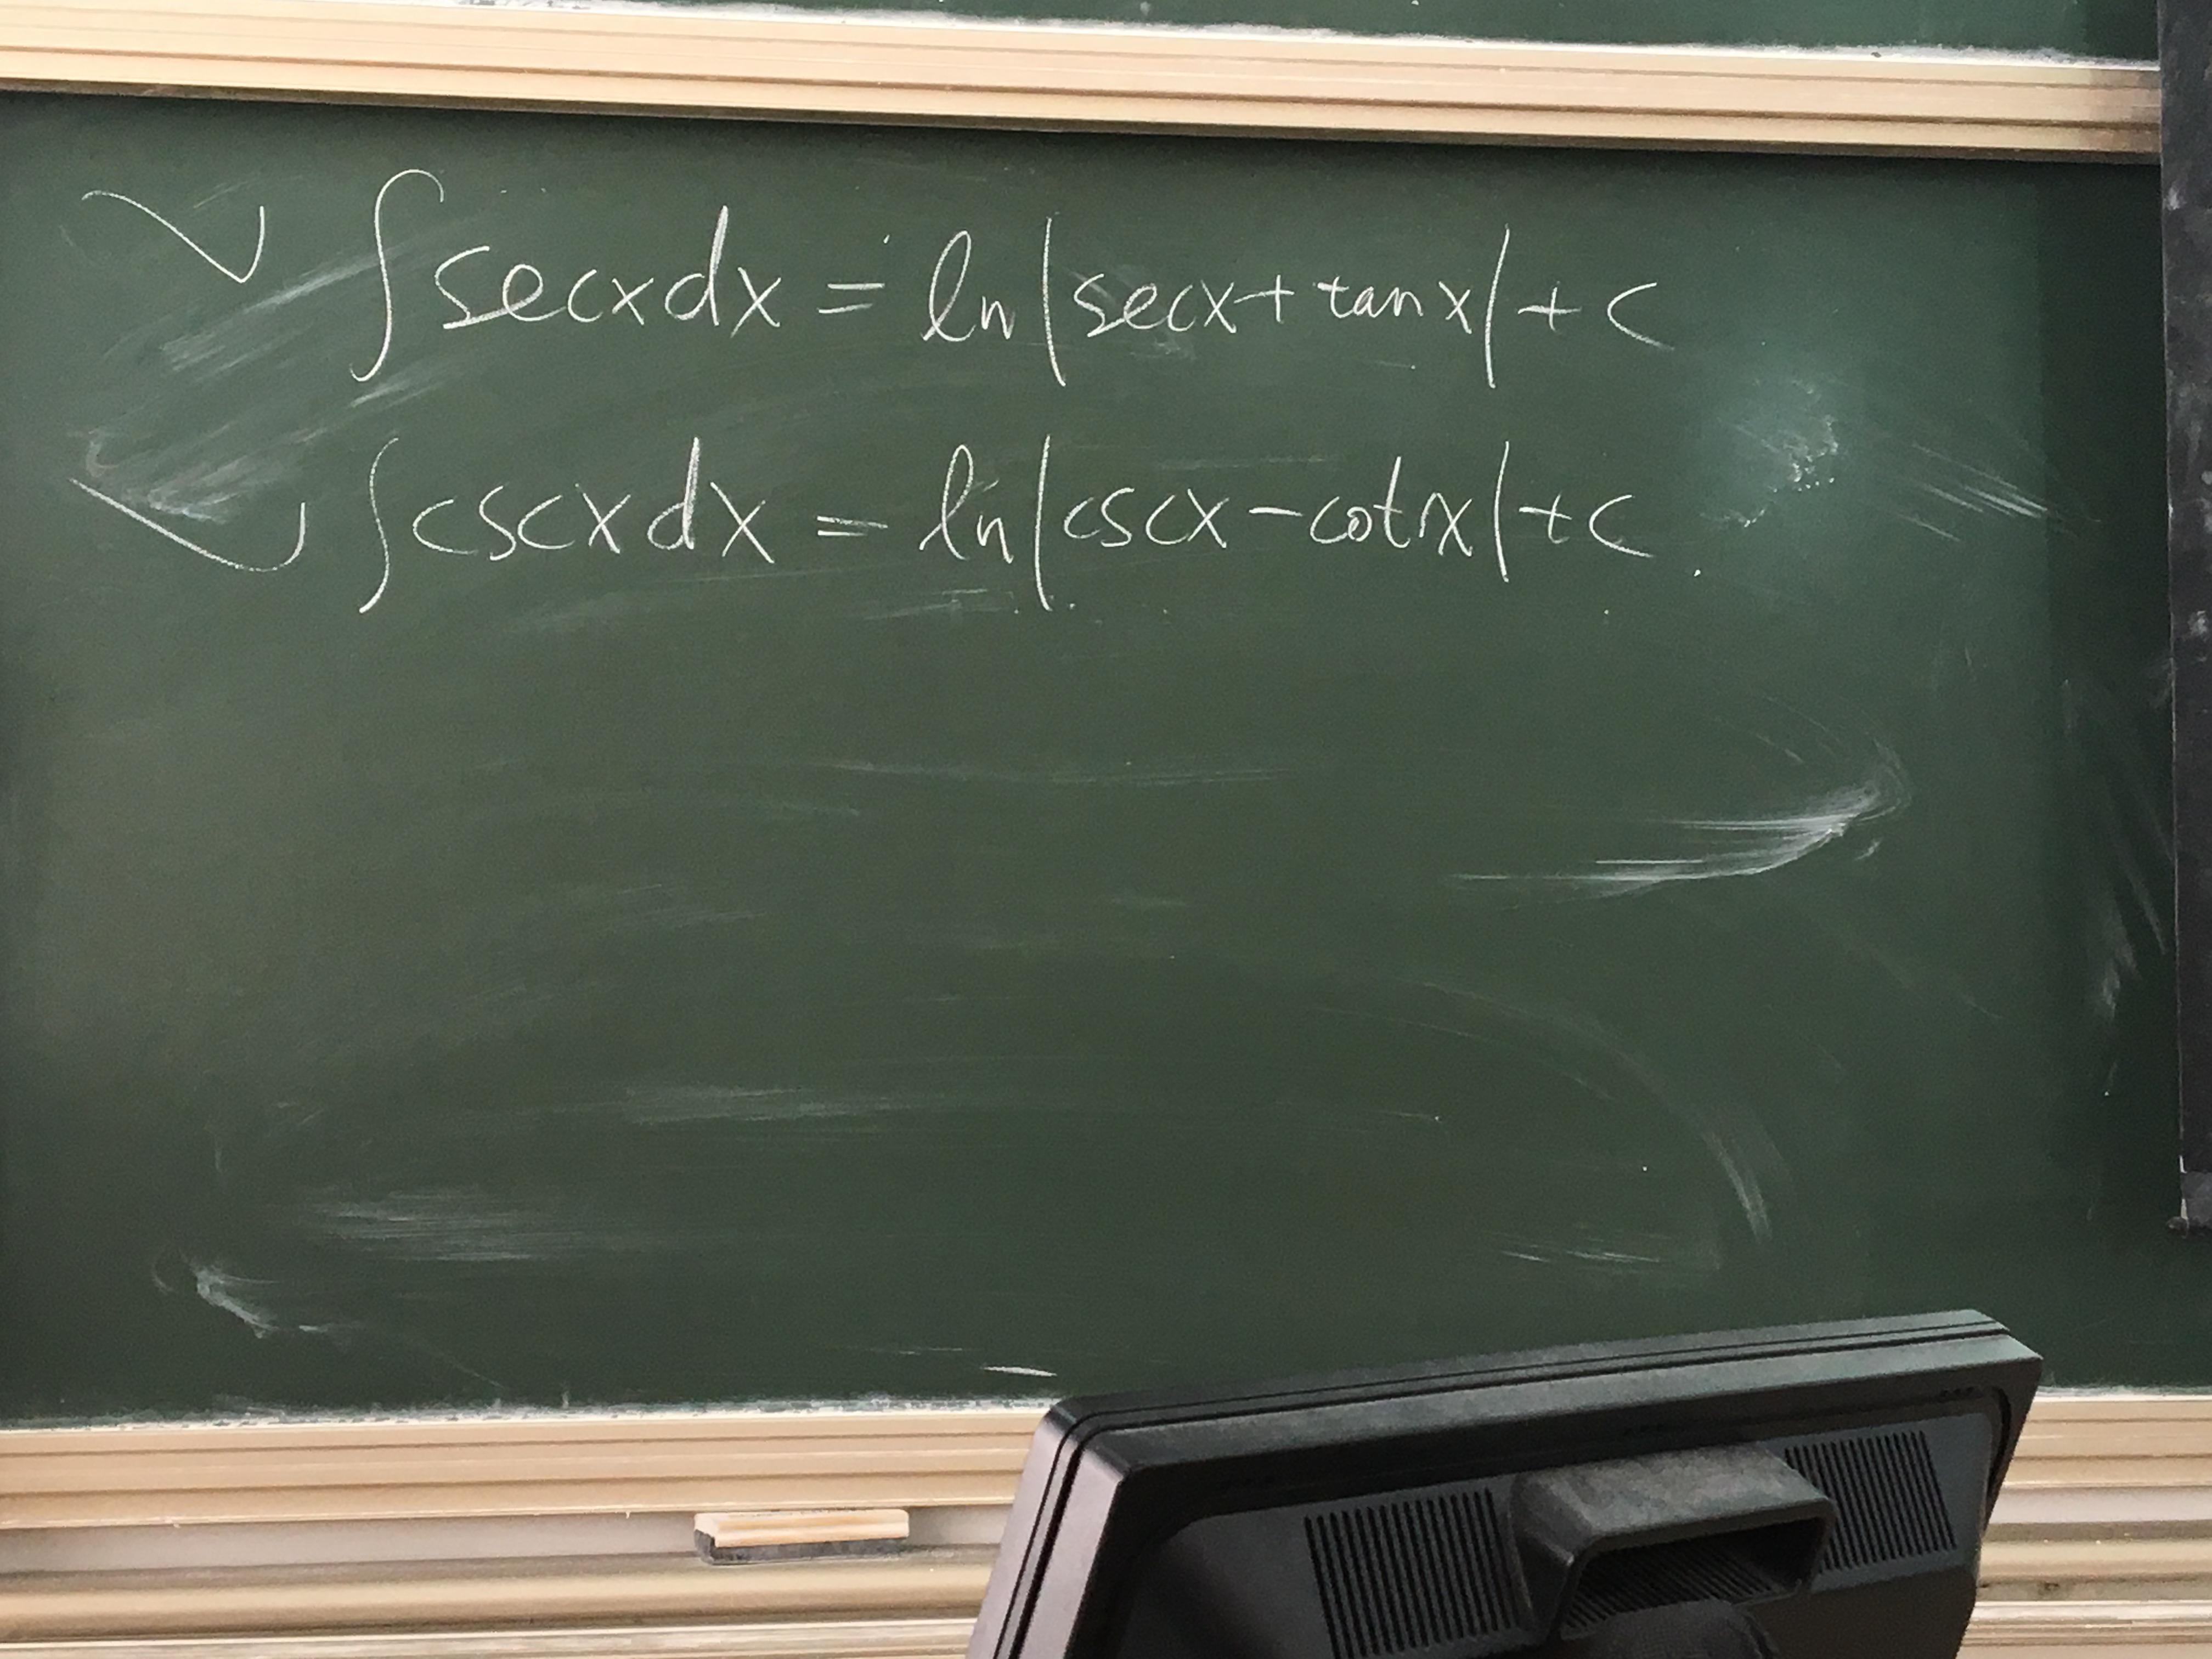 ✓ ∫secxdx = ln|secx+tanx|+c
✓ ∫cscxdx = ln|cscx-cotx|+c